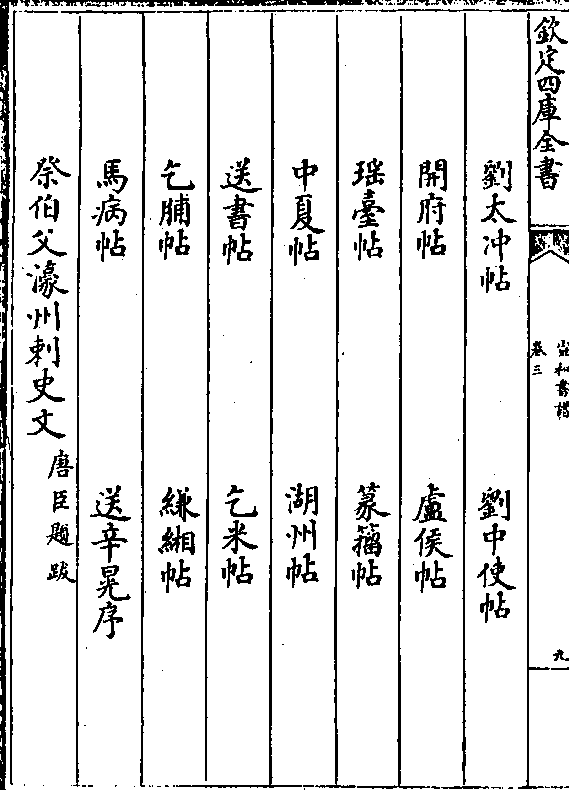 欽定四庫全書
宣和書譜
卷三
九
劉太冲帖 劉中使帖
開府帖 盧侯帖
瑶臺帖 篆籀帖
中夏帖 湖州帖
送書帖 乞米帖
乞脯帖 縑緗帖
馬病帖 送辛晃序
祭伯父濠州刺史文 唐臣題跋